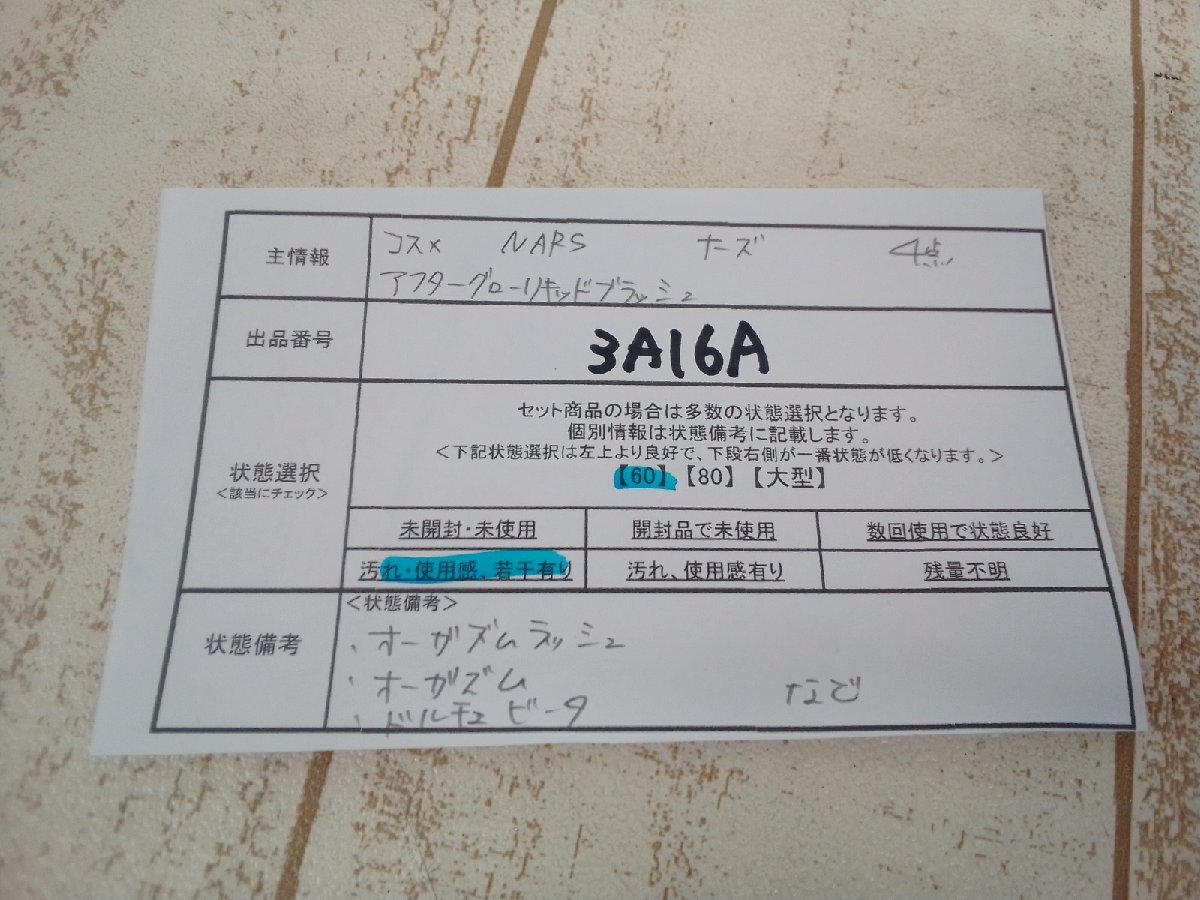 主情報
コスメ NARS ナーズ 4点
アフターグローリキッドブラッシュ
出品番号
3A16A
状態選択
＜該当にチェック＞
セット商品の場合は多数の状態選択となります。
個別情報は状態備考に記載します。
＜下記状態選択は左上より良好で、下段右側が一番状態が低くなります。＞
【60】【80】【大型】
未開封・未使用 開封品で未使用 数回使用で状態良好
汚れ・使用感、若干有り 汚れ、使用感有り 残量不明
状態備考
＜状態備考＞
・オーガズムラッシュ
・オーガズム など
・ドルチェビータ